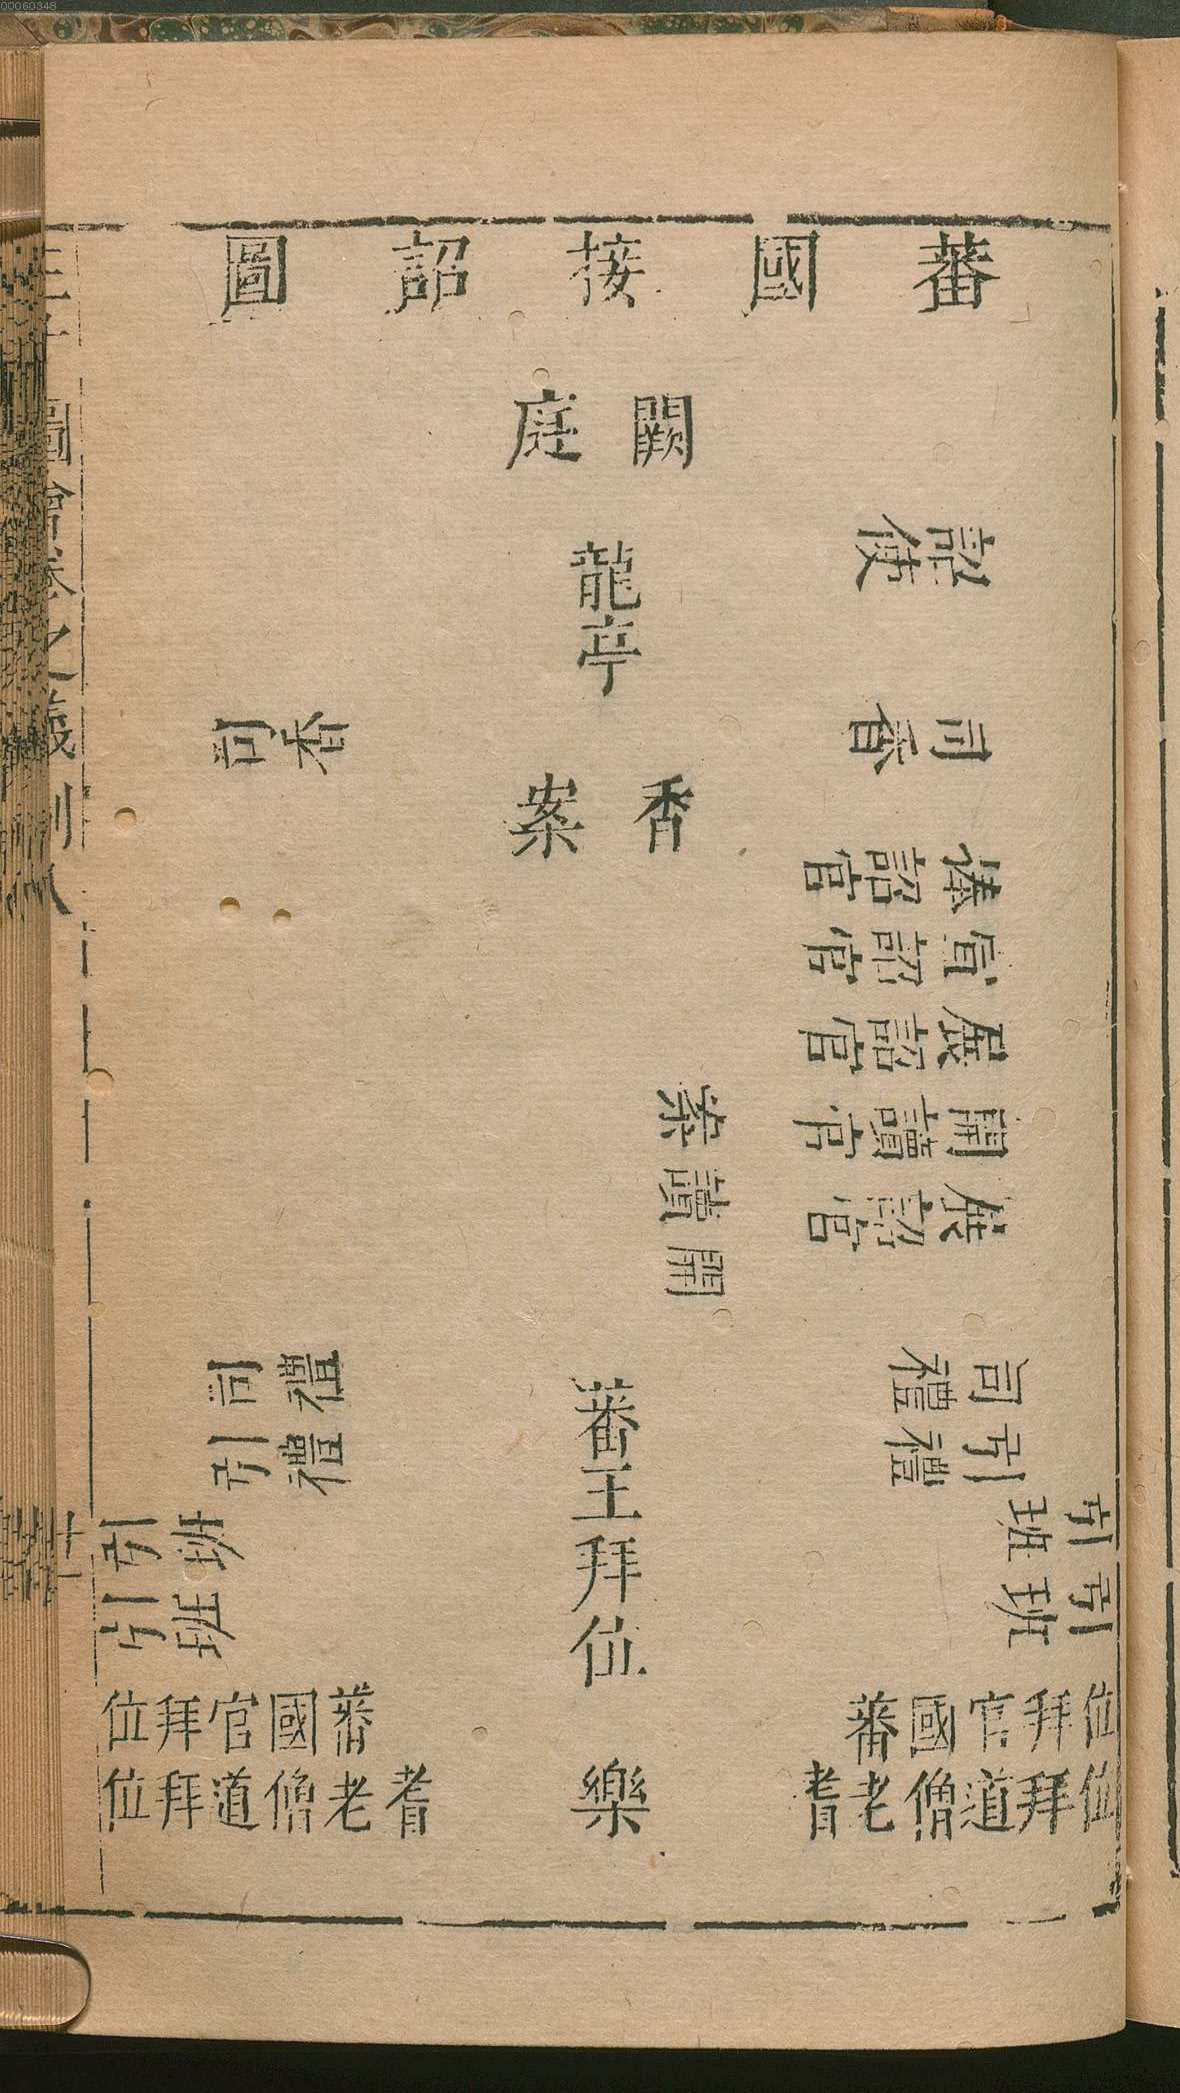 00060348
蕃國接詔圖
闕庭
詔使
龍亭
司香
司香
香案
捧詔官
宣詔官
展詔官
開讀官
展詔官
開讀案
司禮
引禮
司禮
引禮
蕃王拜位
引班
引班
引班
引班
蕃國官拜位
耆老僧道拜位
樂
蕃國官拜位
耆老僧道拜位
圖會
十一